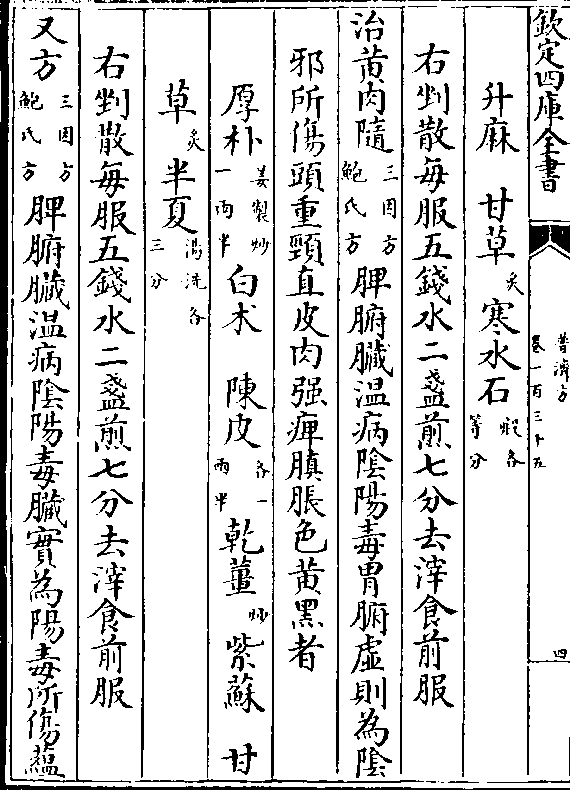 欽定四庫全書
普濟方
卷一百三十五
四
升麻　甘草炙　寒水石煅各等分
右剉散每服五錢水二盞煎七分去滓食前服
治黄肉隨三因方鮑氏方　脾腑臓温病陰陽毒胃腑虚則為陰
邪所傷頭重頸直皮肉强痺䐜脹色黄黒者
厚朴姜製炒一兩半　白术　陳皮各一兩半　乾薑炒　紫蘇　甘
草炙　半夏湯洗各三分
右剉散每服五錢水二盞煎七分去滓食前服
又方三因方鮑氏方　脾腑臓温病陰陽毒臓實為陽毒所傷藴